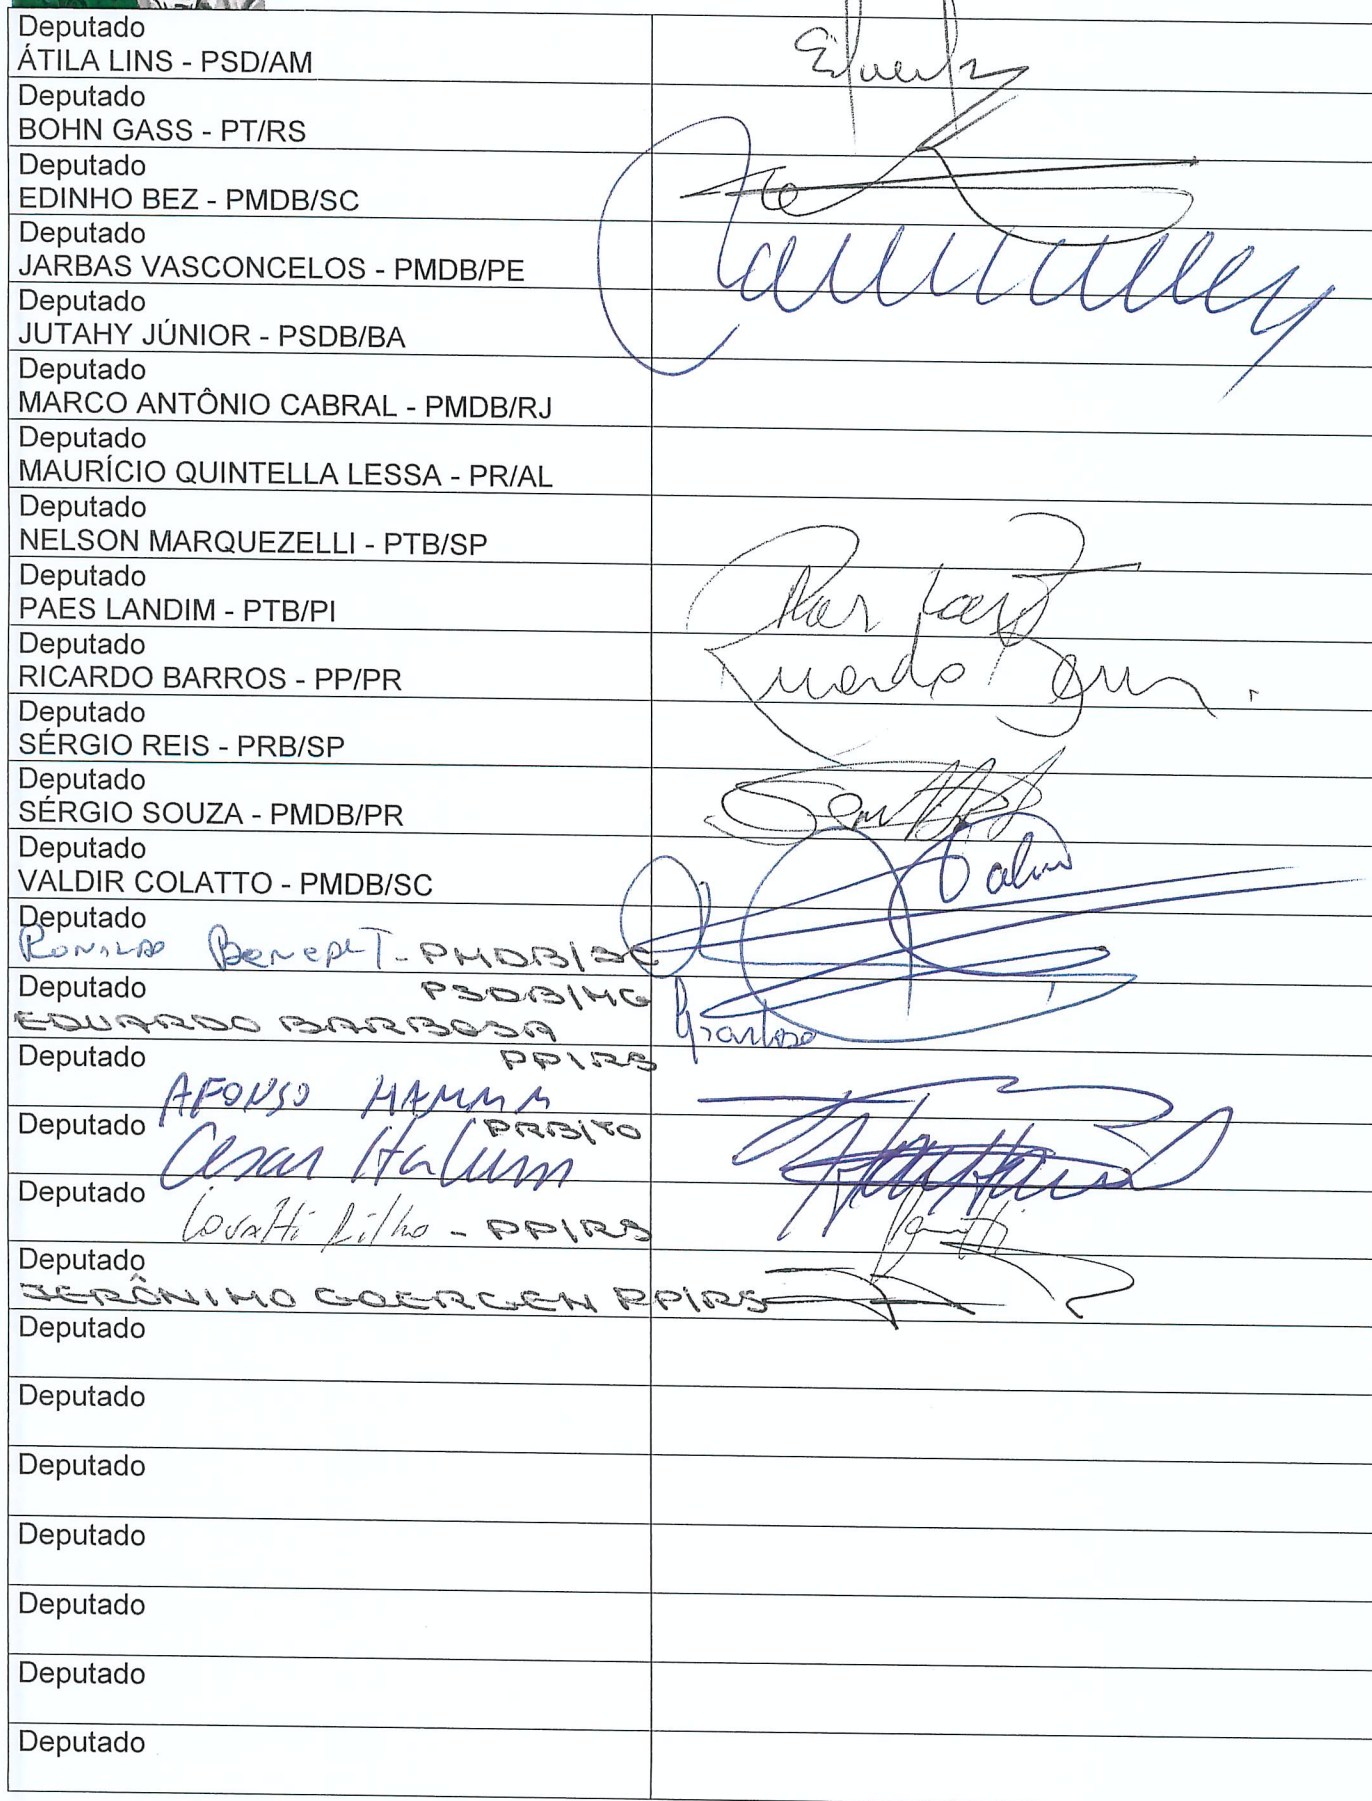 Deputado
ÁTILA LINS - PSD/AM
Deputado
BOHN GASS - PT/RS
Deputado
EDINHO BEZ - PMDB/SC
Deputado
JARBAS VASCONCELOS - PMDB/PE
Deputado
JUTAHY JÚNIOR - PSDB/BA
Deputado
MARCO ANTÔNIO CABRAL - PMDB/RJ
Deputado
MAURÍCIO QUINTELLA LESSA - PR/AL
Deputado
NELSON MARQUEZELLI - PTB/SP
Deputado
PAES LANDIM - PTB/PI
Deputado
RICARDO BARROS - PP/PR
Deputado
SÉRGIO REIS - PRB/SP
Deputado
SÉRGIO SOUZA - PMDB/PR
Deputado
VALDIR COLATTO - PMDB/SC
Deputado
PMDB/SC
Deputado PSDB/MG
EDUARDO BARBOSA
Deputado PP/RS
AFONSO HAMM
Deputado PRB/TO
Cesar Halum
Deputado
Covatti Filho - PP/RS
Deputado
JERÔNIMO GOERGEN PP/RS
Deputado
Deputado
Deputado
Deputado
Deputado
Deputado
Deputado